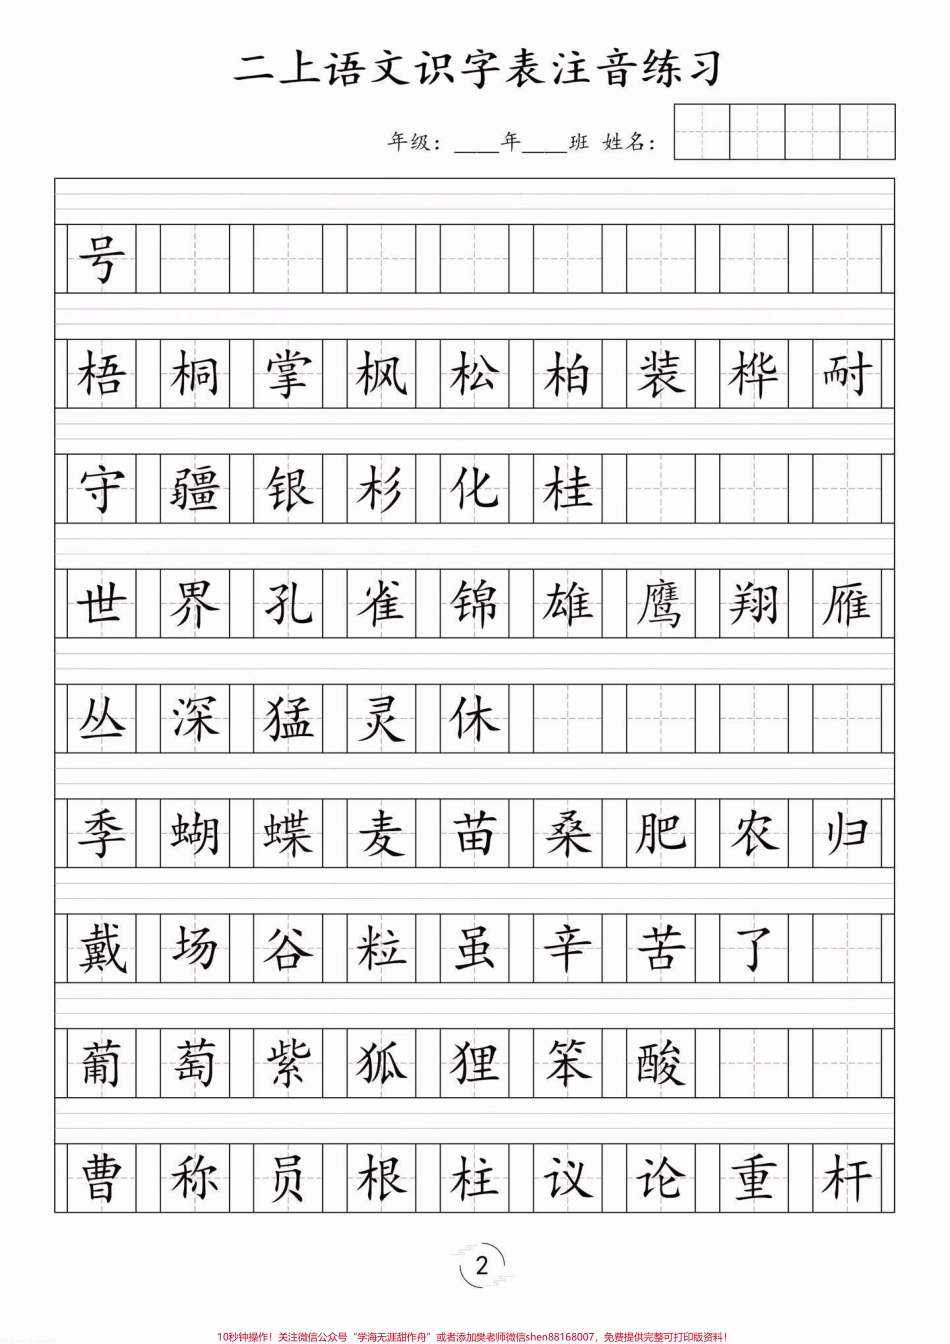 二上语文识字表注音练习
年级：____年____班 姓名：
号
梧 桐 掌 枫 松 柏 装 桦 耐
守 疆 银 杉 化 桂
世 界 孔 雀 锦 雄 鹰 翔 雁
丛 深 猛 灵 休
季 蝴 蝶 麦 苗 桑 肥 农 归
戴 场 谷 粒 虽 辛 苦 了
葡 萄 紫 狐 狸 笨 酸
曹 称 员 根 柱 议 论 重 杆
2
10秒钟操作！关注微信公众号“学海无涯甜作舟”或者添加樊老师微信shen88168007，免费提供完整可打印版资料！